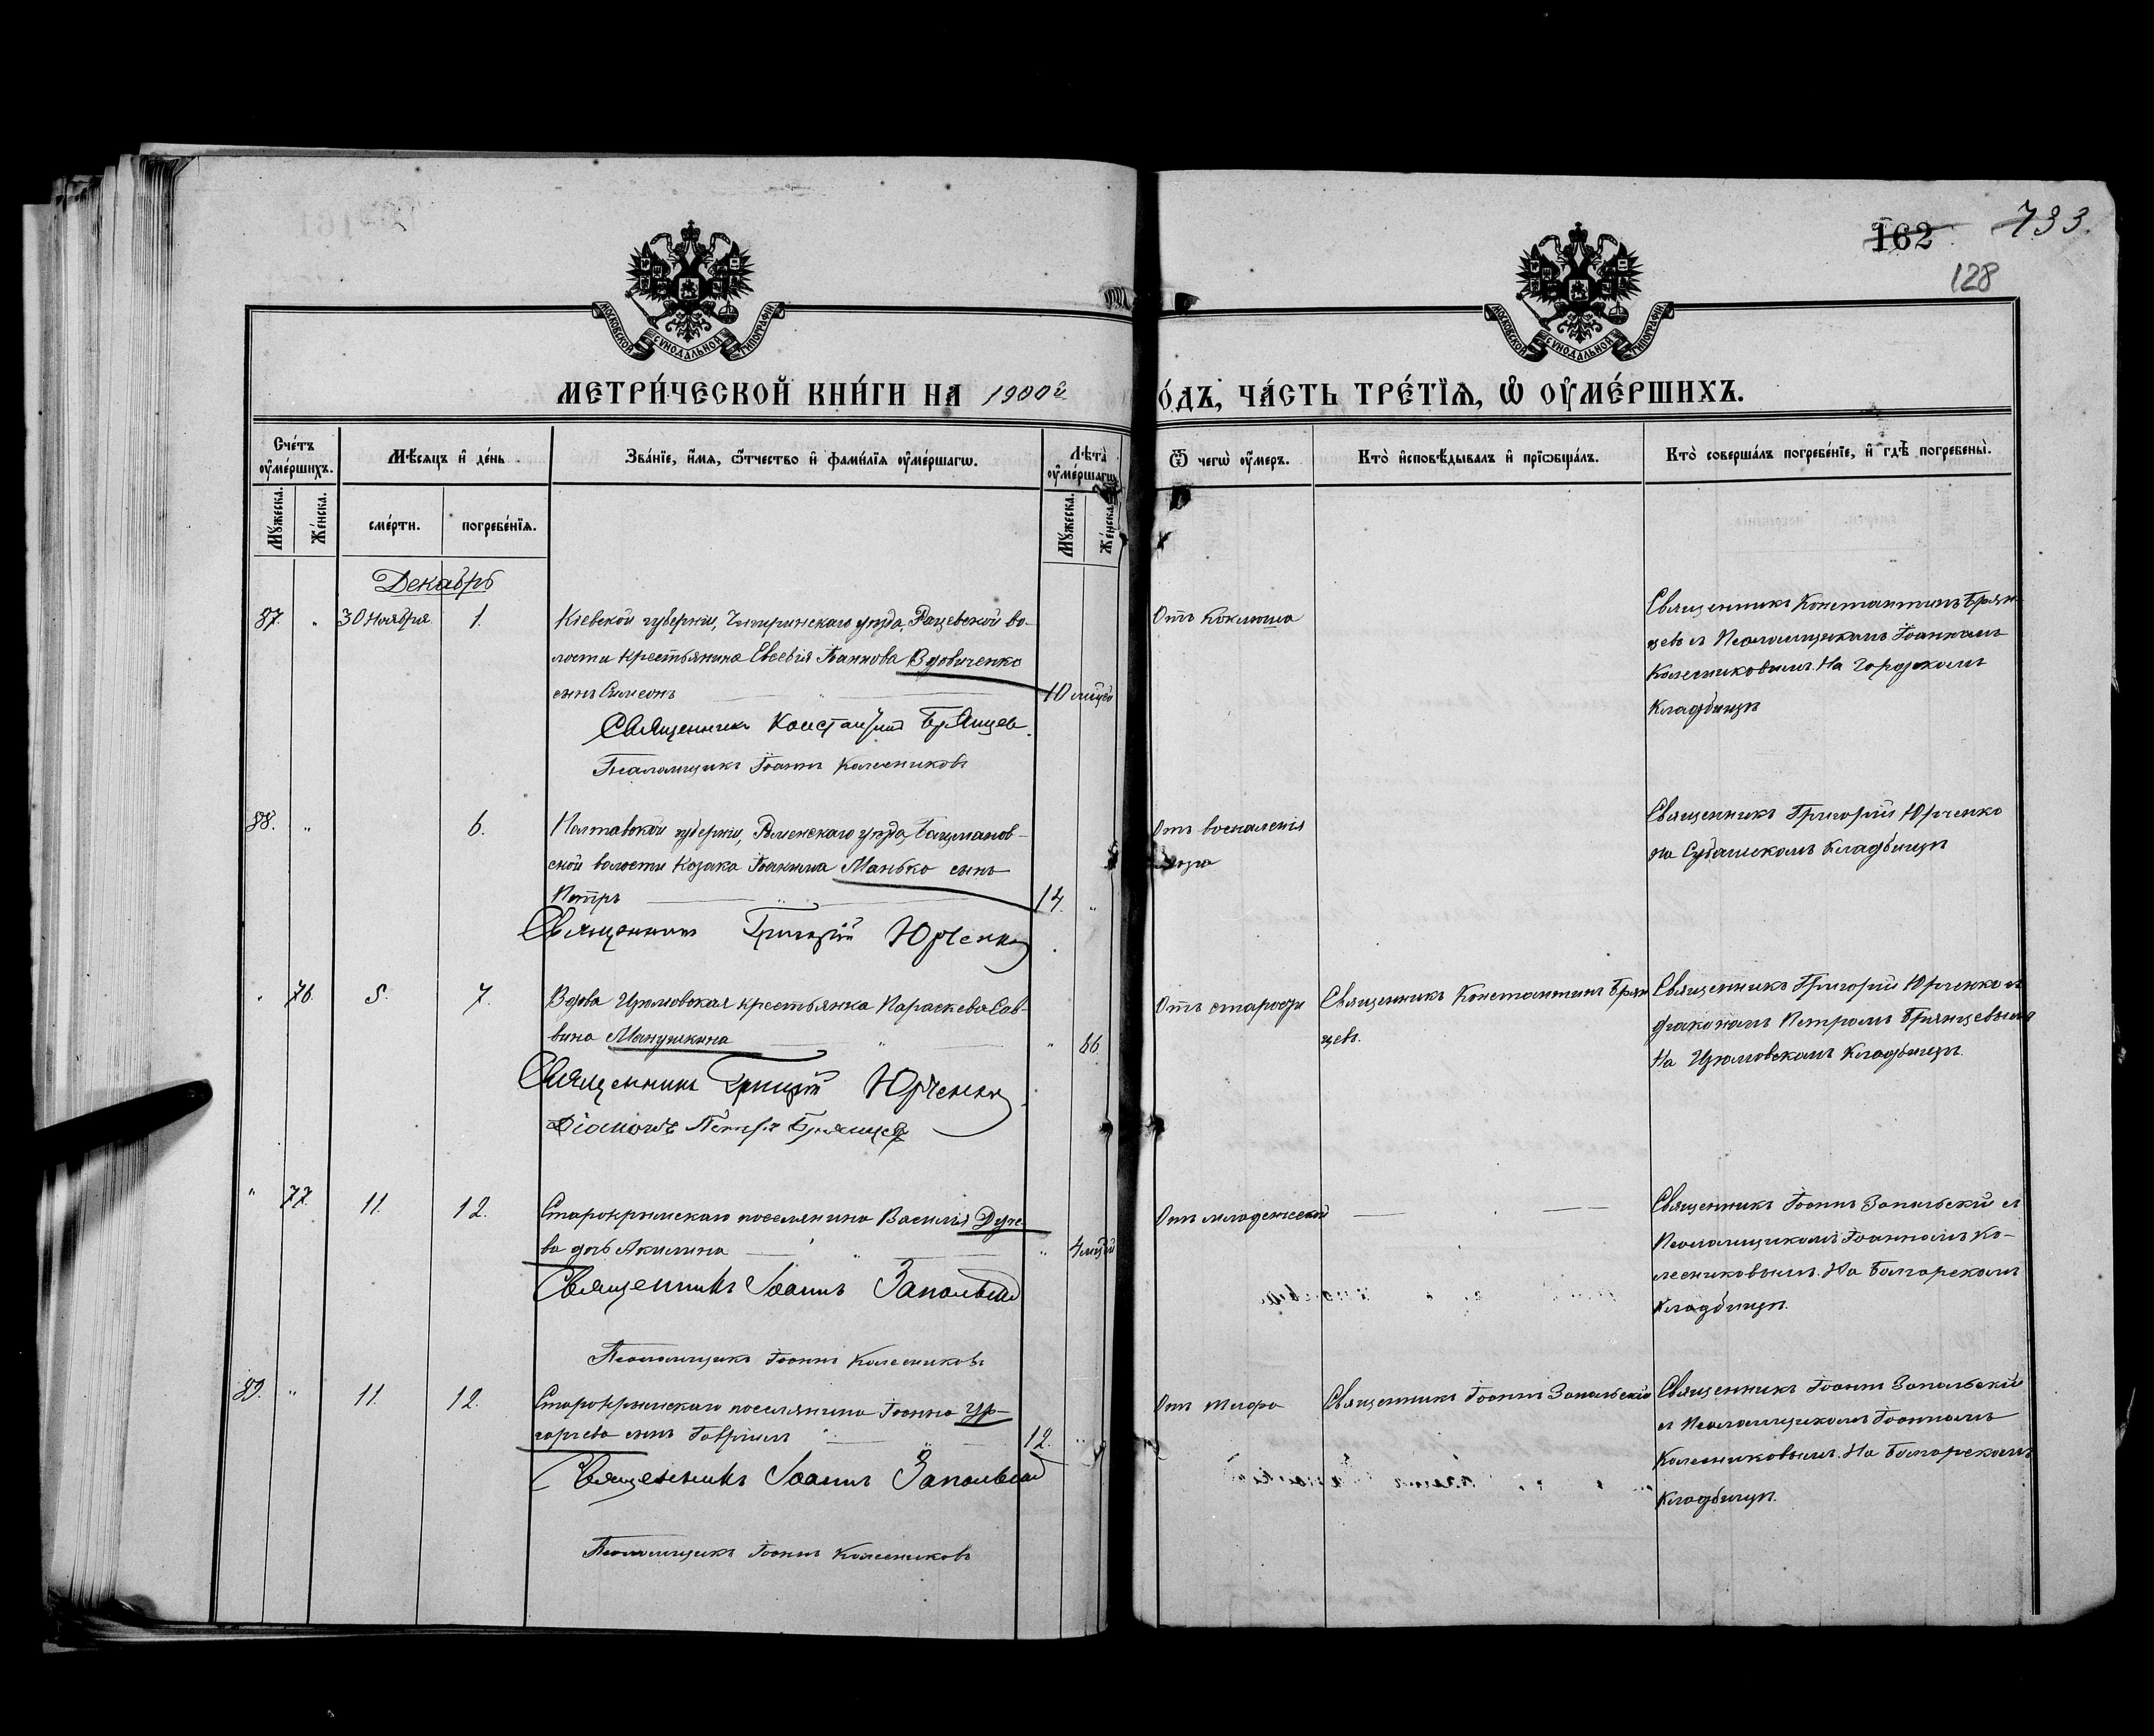 162
733.
128
МОСКОВСКОЙ СѴНОДАЛЬНОЙ ТИПОГРАФІИ
МОСКОВСКОЙ СѴНОДАЛЬНОЙ ТИПОГРАФІИ
МЕТРИ́ЧЕСКОЙ КНИ́ГИ НА 1900й
О́ДЪ, ЧА́СТЬ ТРЕ́ТІѦ, Ѡ҆ ОУ҆МЕ́РШИХЪ.
Сче́тъ оу҆ме́ршихъ.
Мꙋ́жеска.
Же́нска.
Мѣ́сѧцъ и҆ де́нь
сме́рти.
погребе́нїѧ.
Зва́нїе, и҆́мѧ, ѻ҆́тчество и҆ фами́лїѧ оу҆ме́ршагѡ.
Лѣ́та оу҆ме́ршагѡ
Мꙋ́жеска.
Же́нска
Ѿ чегѡ̀ оу҆́меръ.
Кто̀ и҆сповѣ́дывалъ и҆ прїѡбща́лъ.
Кто̀ соверша́лъ погребе́нїе, и҆ гдѣ̀ погребены̀.
Декабрь
87. " 30 Ноября 1.
Кіевской губерніи, Чигиринскаго уѣзда, Рацевской во-
лости крестьянина Евсевія Іаннова Вдовиченко
сынъ Симеонъ 10 мѣцев
Священникъ Константинъ Брянцев.
Псаломщикъ Іоаннъ Колесниковъ
Отъ коклюша
Священникъ Константинъ Брян-
цевъ съ Псаломщикомъ Іоанномъ
Колесниковымъ. На городскомъ
Кладбищѣ
88. " 6.
Полтавской губерніи, Роменскаго уѣзда, Бацманов-
ской волости Козака Іоакима Манько сынъ
Петръ 14. "
Священникъ Григорій Юрченко
Отъ воспаленія
Священникъ Григорій Юрченко
На Кладбищѣ
" 76. 5. 7.
Вдова Цюмовская крестьянка Параскева Сав-
вина Манушкина " 66
Священникъ Григорій Юрченко
Діаконъ Петръ Брянцев
Отъ старости
Священникъ Константинъ Брян
цевъ.
Священникъ Григорій Юрченко съ
діакономъ Петромъ Брянцевымъ
На Цюмовскомъ Кладбищѣ.
" 77. 11. 12.
Старокрымскаго поселянина Василія Дуче-
ва дочь Акилина " 4 мѣц.
Священникъ Іоаннъ Запольскій
Псаломщикъ Іоаннъ Колесниковъ
Отъ младенческой
Священникъ Іоаннъ Запольскій съ
Псаломщикомъ Іоанномъ Ко-
лесниковымъ. На Болгарскомъ
Кладбищѣ.
89. " 11. 12.
Старокрымскаго поселянина Іоанна Гур-
горчева сынъ Гавріилъ 12. "
Священникъ Іоаннъ Запольскій
Псаломщикъ Іоаннъ Колесниковъ
Отъ тифа
Священникъ Іоаннъ Запольскій
Священникъ Іоаннъ Запольскій
съ Псаломщикомъ Іоанномъ
Колесниковымъ. На Болгарскомъ
Кладбищѣ.